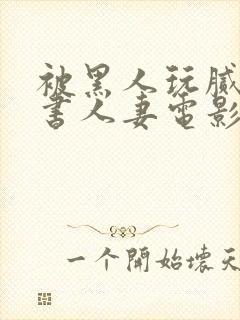 被黑人玩腻
书人妻電影
一个開始壞天